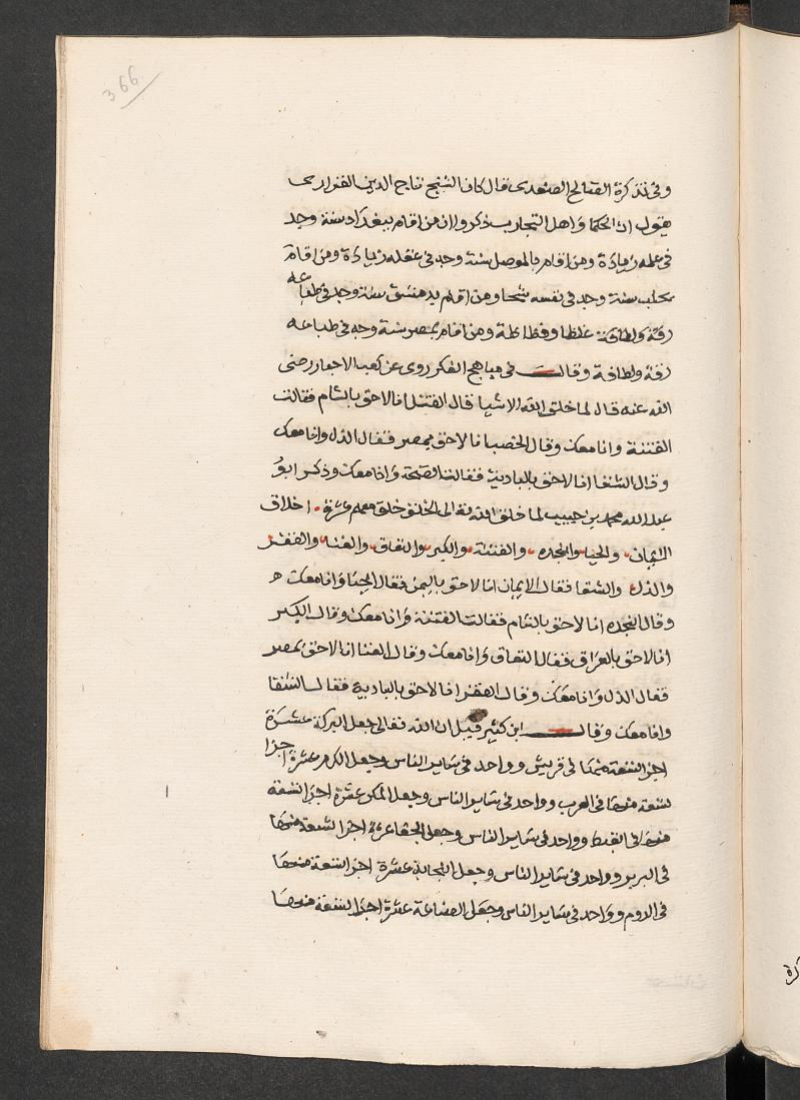 366
وفى تذكرة الصالح الصفدى قال كان الشيخ تاج الدين الفزارى
يقول ان الحكما واهل التجارب ذكروا ان من اقام ببغداد سنة وجد
فى عمله زيادة ومن اقام بالموصل سنة وجد فى عقله زيادة ومن اقام
بحلب سنة وجد فى نفسه شحا ومن اقام بدمشق سنة وجد فى طباعه
رقة ولطافة غلظا وفظاظة ومن اقام بمصر سنة وجد فى طباعه
رقة ولطافة وقال فى مباهج الفكر روى عن كعب الاحبار رضى
الله عنه قال لما خلق الله الاشيا قال القتل انا لاحق بالشام فقالت
الفتنة وانا معك وقال الخصب انا لاحق بمصر فقال الذل وانا معك
وقال الشقا انا لاحق بالبادية فقالت الصحة وانا معك وذكر ابو
عبد الله محمد بن حبيب لما خلق الله تعالى الخلق خلق معهم عشرة اخلاق
الايمان والحيا والنجده والفتنة والكبر والنفاق والغنا والفقر
والذل والشقا فقال الايمان انا لاحق باليمن فقال الحيا وانا معك ه
وقال النجده انا لاحق بالشام فقالت الفتنة وانا معك وقال الكبر
انا لاحق بالعراق فقال النفاق وانا معك وقال الغنا انا لاحق بمصر
فقال الذل وانا معك وقال الفقر انا لاحق بالبادية فقال الشقا
وانا معك وقال ابن كثير قيل ان الله تعالى جعل البركة عشرة
اجزا التسعة منها فى قريش وواحد فى ساير الناس وجعل الكرم عشرة اجزا
تسعة منها فى العرب وواحد فى ساير الناس وجعل المكر عشرة اجزا تسعة
منها فى القبط وواحد فى ساير الناس وجعل الجفا عشرة اجزا تسعة منها
فى البربر وواحد فى ساير الناس وجعل النجابة عشرة اجزا تسعة منها
فى الروم وواحد فى ساير الناس وجعل الصناعة عشرة اجزا تسعة منها